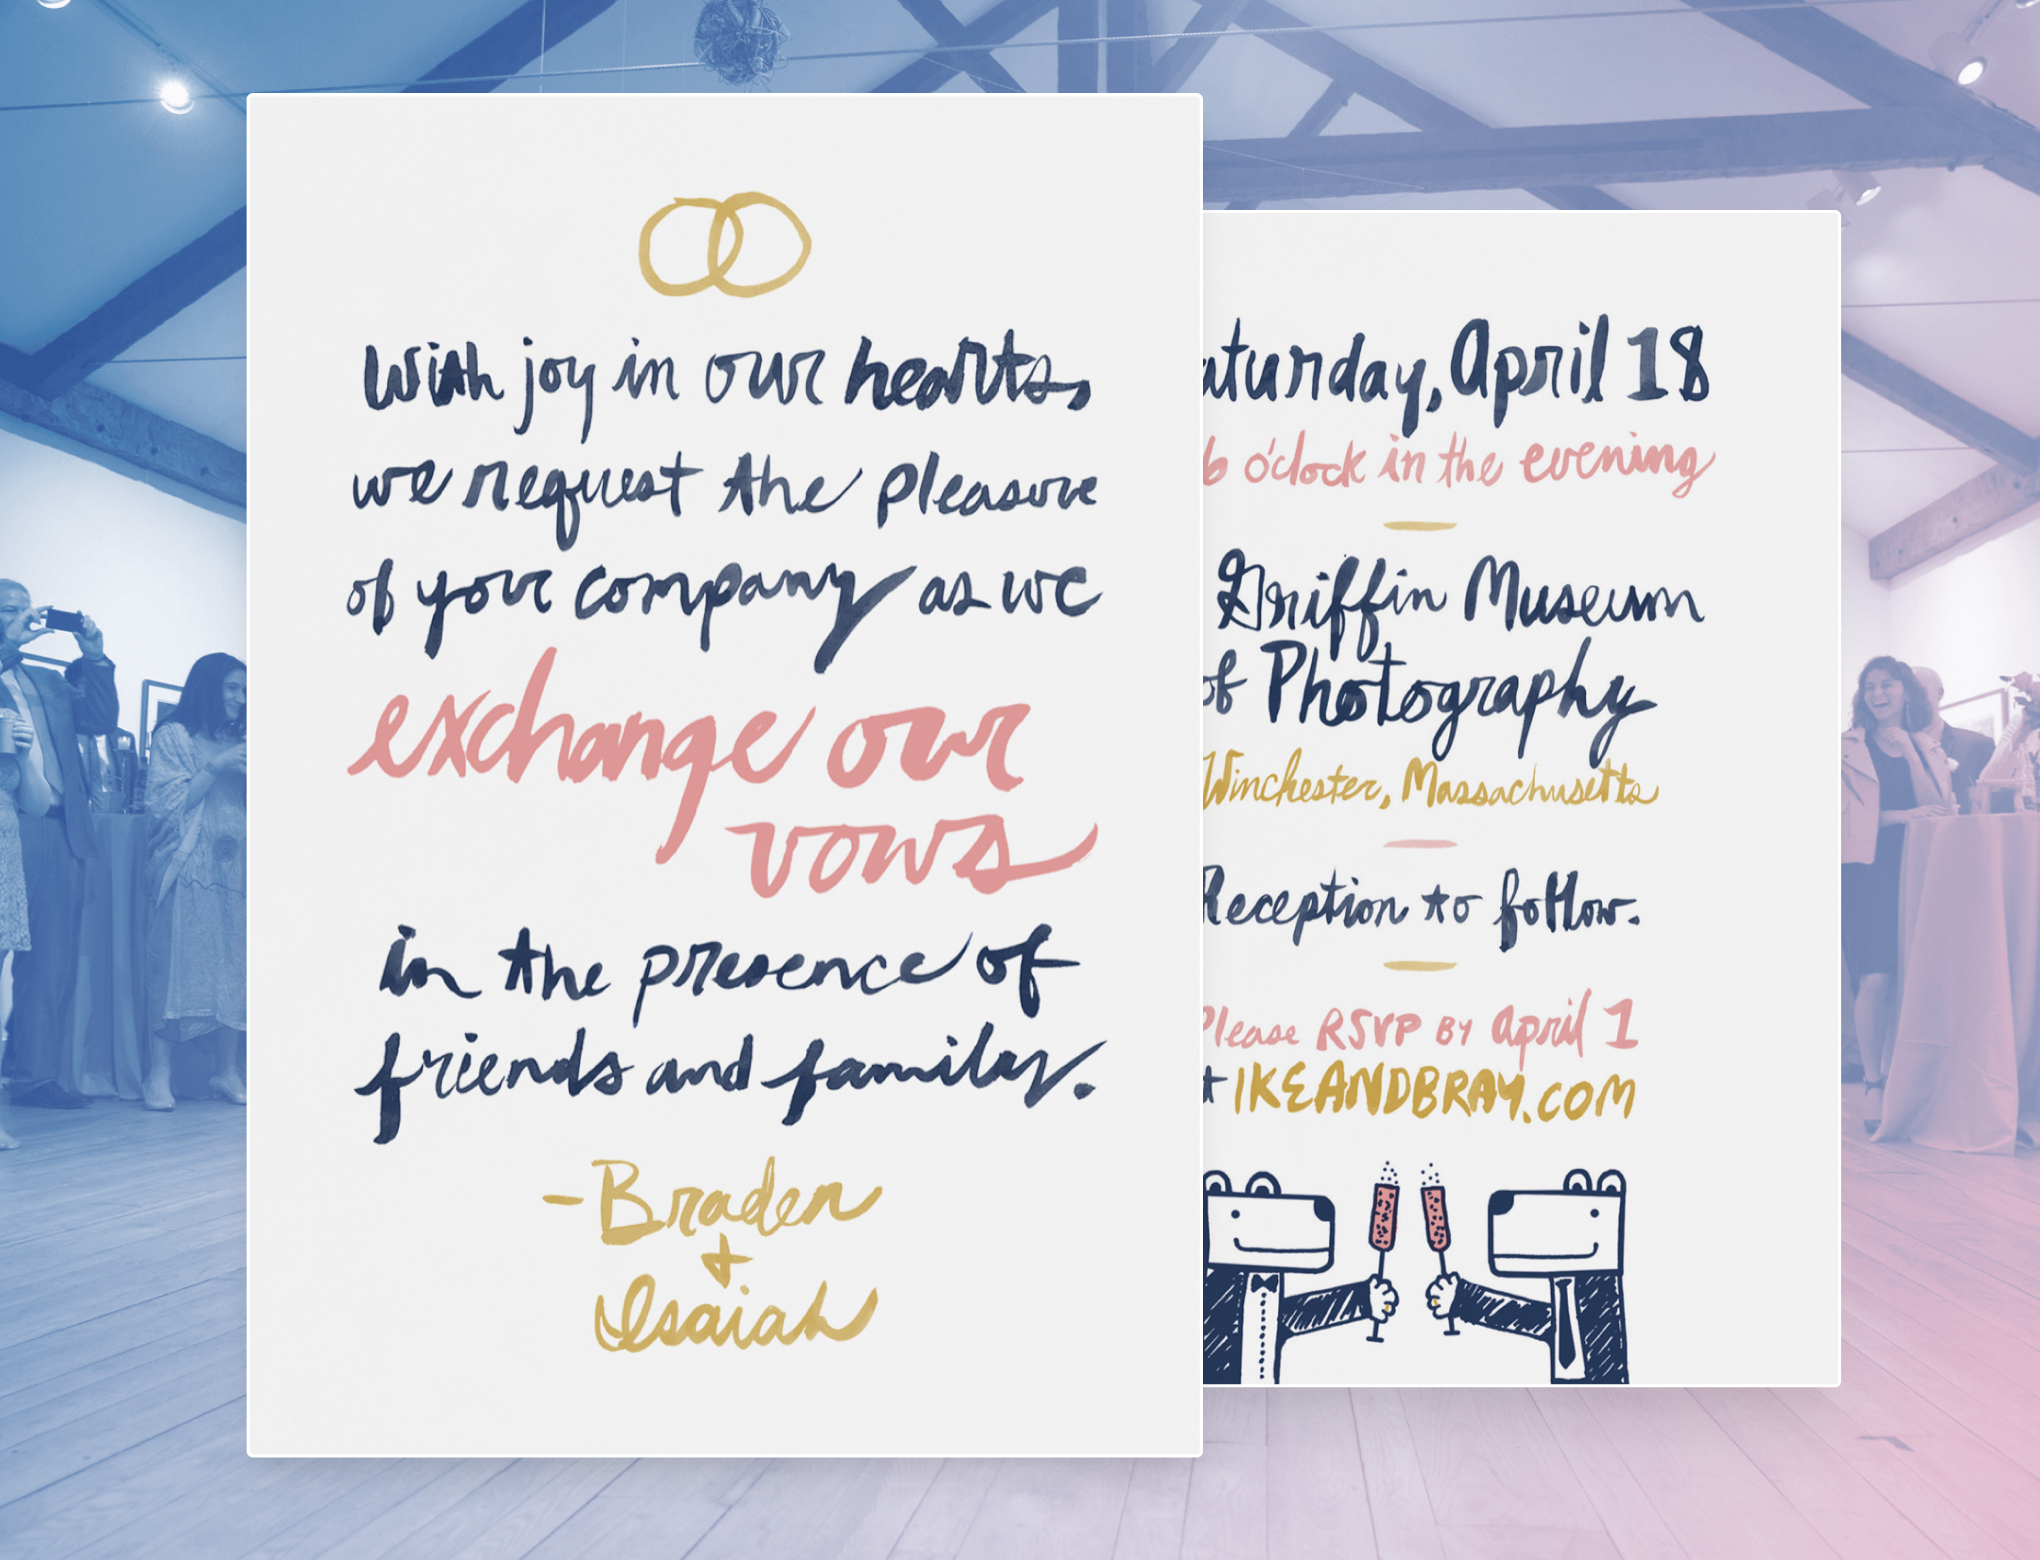 With joy in our hearts,
we request the pleasure
of your company as we
exchange our
vows
in the presence of
friends and family.
- Braden
+
Isaiah
aturday, April 18
6 o'clock in the evening
Griffin Museum
of Photography
Winchester, Massachusetts
Reception to follow.
Please RSVP by April 1
IKEANDBRAY.COM